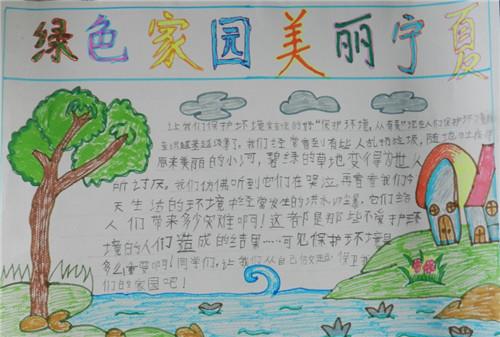 绿色家园美丽宁夏
让我们保护环境 "保护环境,从
我们经常看到有些人乱扔垃圾,随地
原来美丽的小河,碧绿的草地变得为世人
所讨厌。我们仿佛听到它们在哭泣再看看我们今
天生活的环境 经常发生的洪水 它们给
人们带来多少灾难啊!这都是那些不爱护环
境的人们造成的结果……可见保护环境是
多么重要啊!同学们,让我们从自己做起,保卫
们的家园吧!